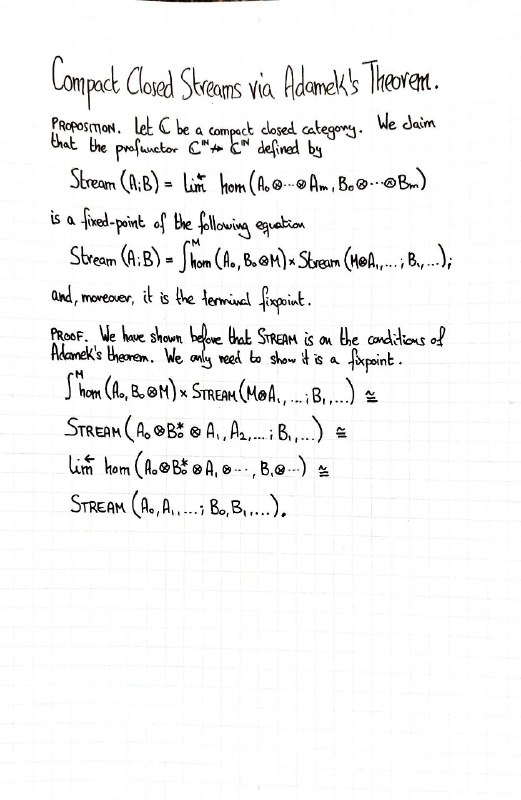 Compact Closed Streams via Adamek's Theorem.
PROPOSITION. Let ℂ be a compact closed category. We claim
that the profunctor ℂ^ℕ ⇸ ℂ^ℕ defined by
Stream (A;B) = lim← hom (A₀⊗⋯⊗Aₘ, B₀⊗⋯⊗Bₘ)
is a fixed-point of the following equation
Stream (A;B) = ∫^M hom (A₀, B₀⊗M) × Stream (M⊗A₁,...; B₁,...);
and, moreover, it is the terminal fixpoint.
PROOF. We have shown before that STREAM is on the conditions of
Adamek's theorem. We only need to show it is a fixpoint.
∫^M hom (A₀, B₀⊗M) × STREAM (M⊗A₁,...; B₁,...) ≅
STREAM (A₀⊗B₀*⊗A₁, A₂,...; B₁,...) ≅
lim← hom (A₀⊗B₀*⊗A₁⊗⋯, B₁⊗⋯) ≅
STREAM (A₀, A₁,...; B₀, B₁,...).